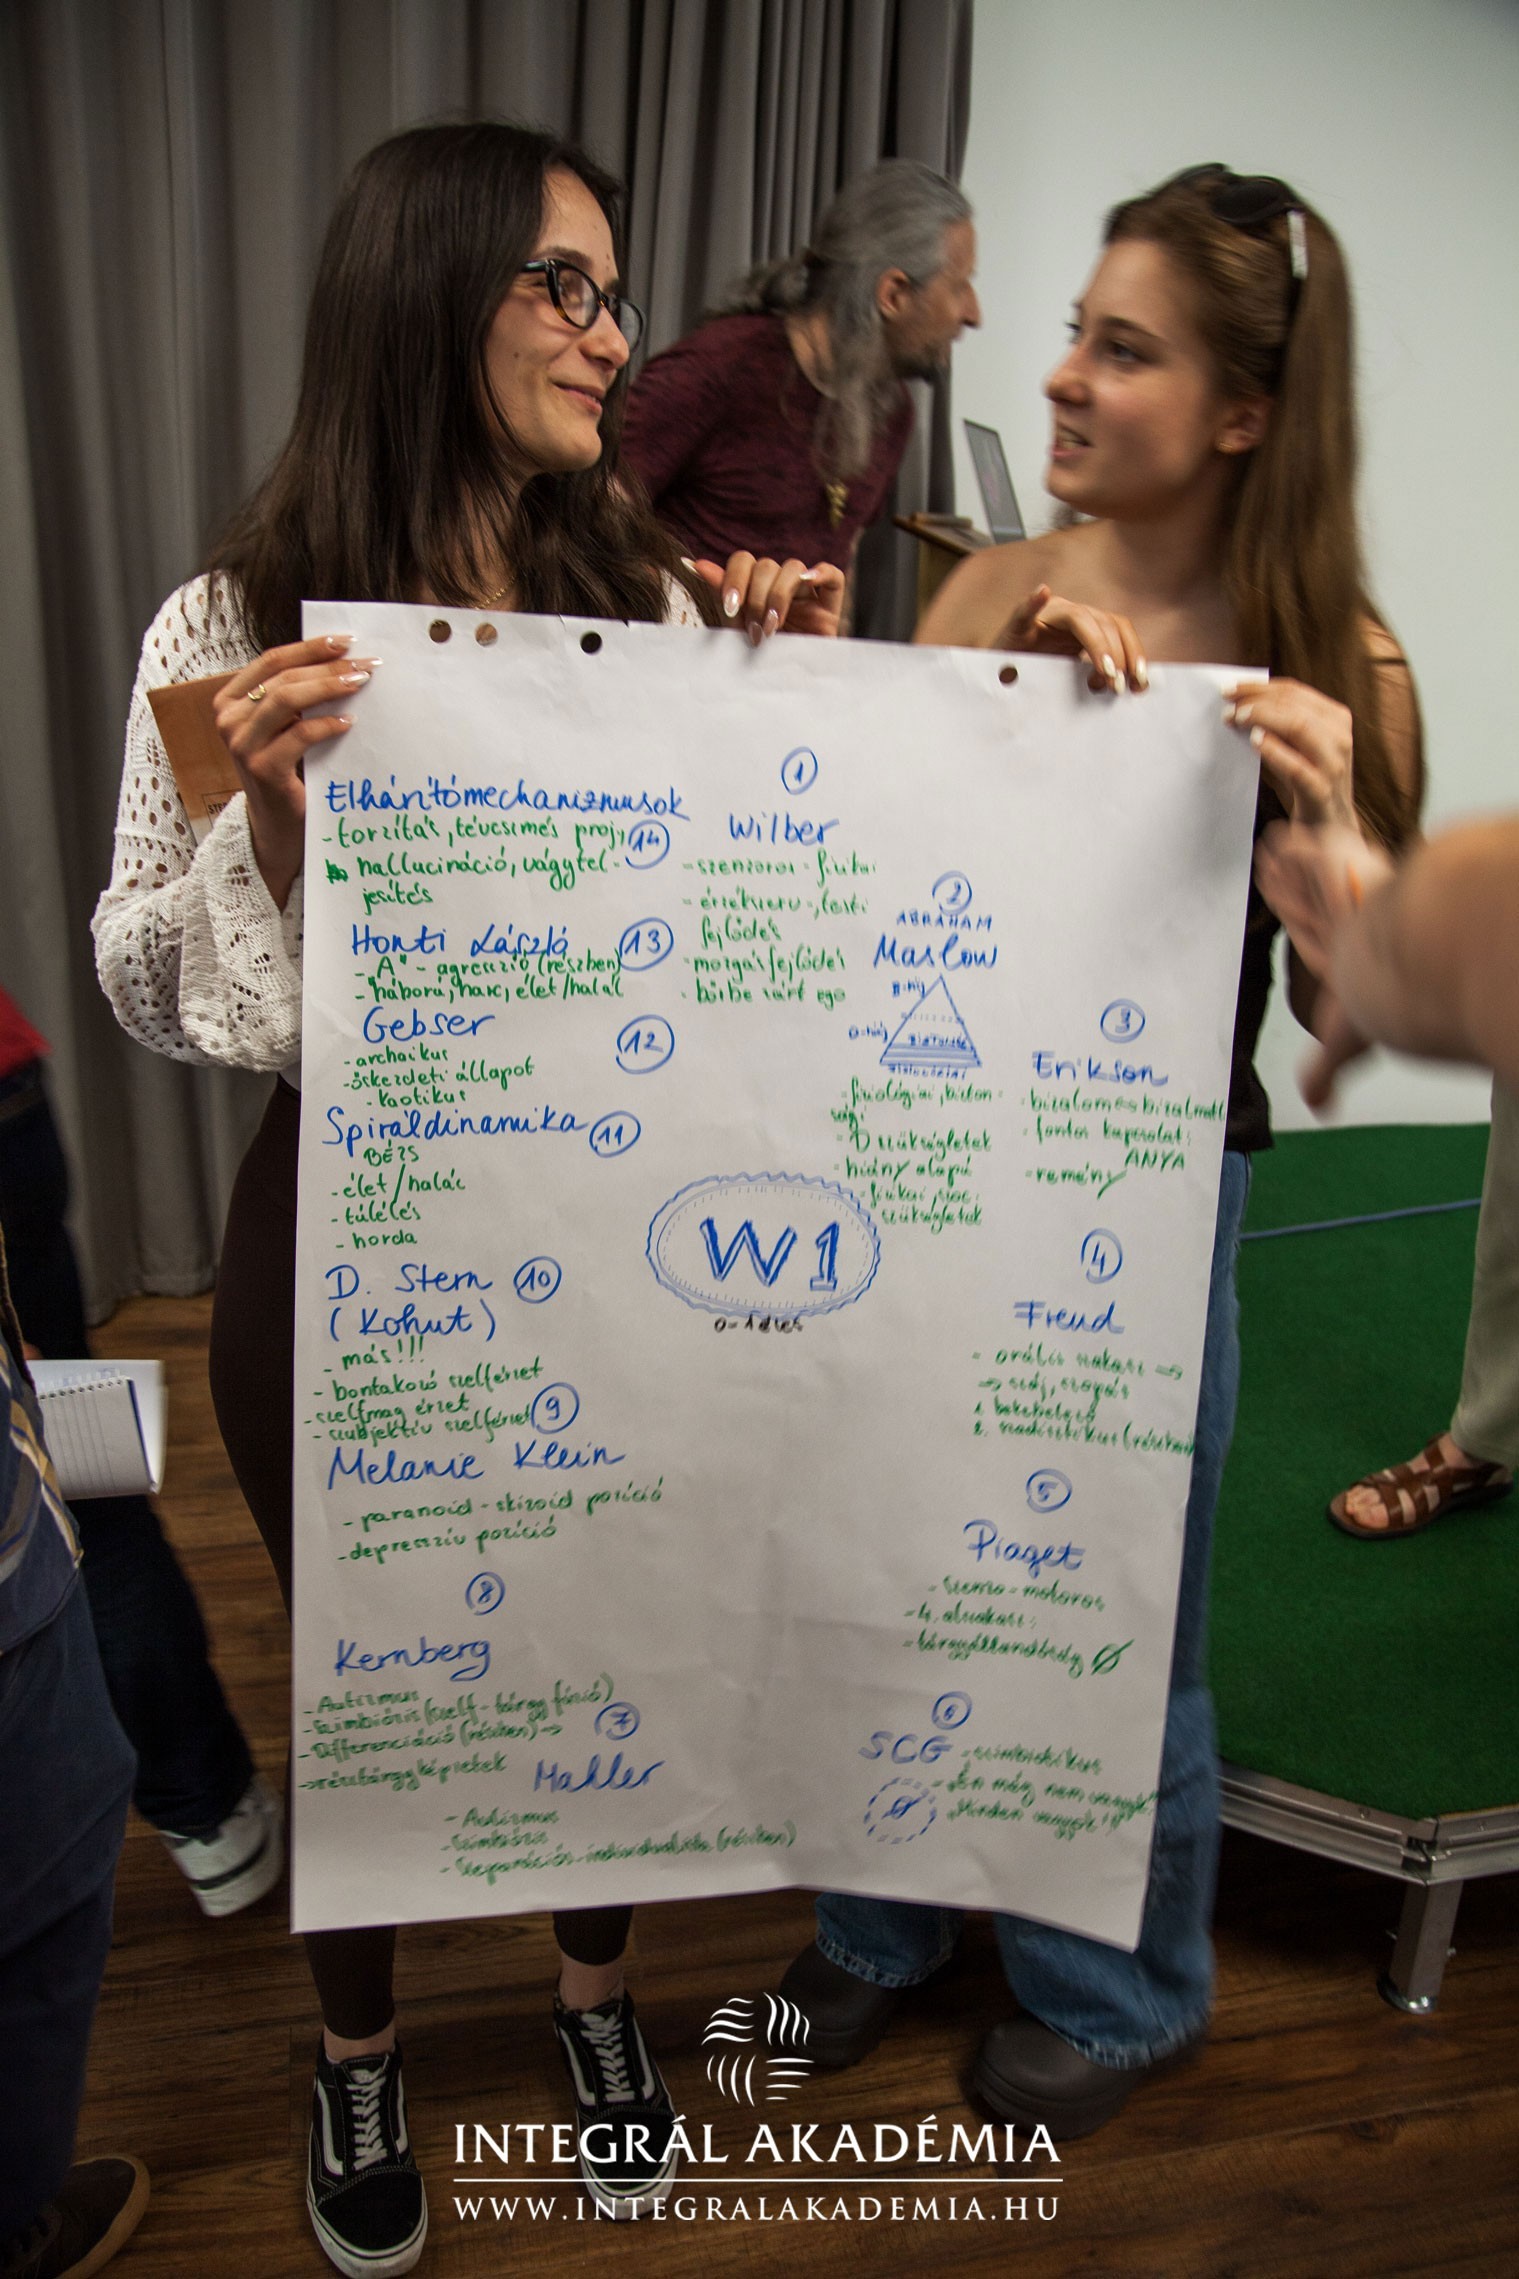 1
Wilber
- szenzoros - fizikai
- érzékszervi -, testi
fejlődés
- mozgásfejlődés
- bőrbe zárt ego
2
ABRAHAM
Maslow
- fiziológiai, bizton-
sági
- D szükségletek
- hiány alapú
- fizikai, szoc.
szükségletek
3
Erikson
- bizalom és bizalmatl
- fontos kapcsolat:
ANYA
- remény
4
Freud
- orális szakasz →
→ száj, szopás
1. bekebelező
2. szadisztikus (részben)
5
Piaget
- szenzo-motoros
- 4. alszakasz:
- tárgyállandóság
6
SCG - szimbiotikus
- "Én még nem vagyok"
"Minden vagyok!"
7
Mahler
- Autizmus
- Szimbiózis
- Szeparációs-individuációs (részben)
8
Kernberg
- Autizmus
- Szimbiózis (szelf - tárgy fúzió)
- Differenciáció (részben) →
→ résztárgyképzetek
9
Melanie Klein
- paranoid - skizoid pozíció
- depresszív pozíció
10
D. Stern
(Kohut)
- más!!!
- bontakozó szelférzet
- szelfmag érzet
- szubjektív szelférzet
11
Spiráldinamika
BÉZS
- élet/halál
- túlélés
- horda
12
Gebser
- archaikus
- őskezdeti állapot
- kaotikus
13
Honti László
- "A" - agresszió (részben)
- háború, harc, élet/halál
14
Elhárítómechanizmusok
- torzítás, téveszmés proj,
hallucináció, vágytel-
jesítés
W1
0-1 éves
INTEGRÁL AKADÉMIA
WWW.INTEGRALAKADEMIA.HU